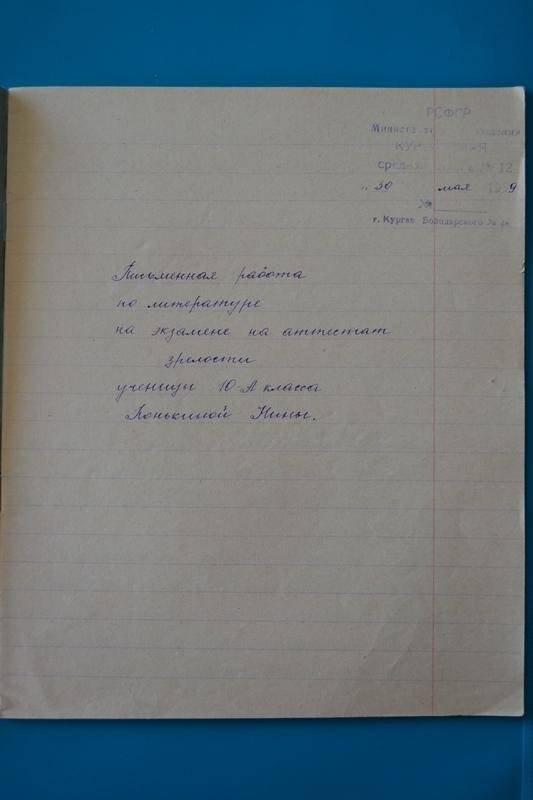 РСФСР
средняя № 12
„ 30 мая 19 9
№
г. Курган Володарского №
Письменная работа
по литературе
на экзамене на аттестат
зрелости
ученицы 10 „А класса
Понькиной Нины.